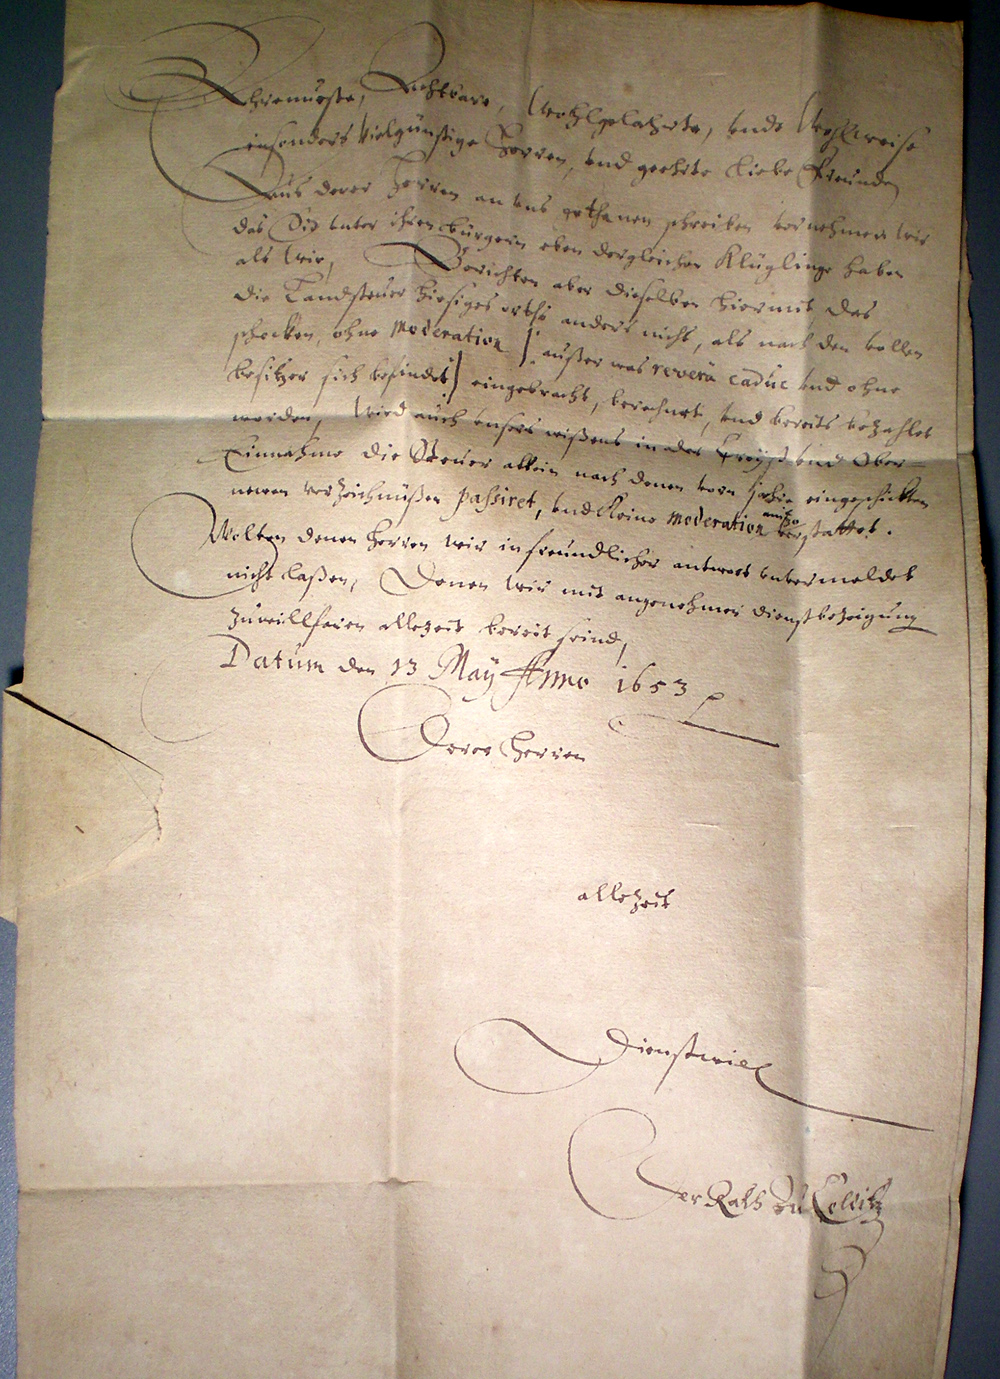 Ehrenveste, Achtbare, Wohlgelahrte, vnde Wohlweise
insonders vielgünstige Herren, vnd geehrte liebe Freunde,
Aus derer Herren an vns gethanen schreiben vernehmen wir
das Sie vnter ihren bürgern eben dergleichen Klüglinge haben
als wir, Berichten aber dieselben hiermit das
die Landsteuer hiesiges orths anders nicht, als nach den vollen
schocken, ohne moderation |: außer was reverà caduc vnd ohne
besitzer sich befindet :| eingebracht, berechnet, vnd bereits bezahlet
worden, Wird auch vnsers wißens in der Creyß vnd Ober-
Einnahme die Steuer allein nach denen vorn eingeschickten
newen verzeichnüßen passiret, vnd keine moderation verstattet.
Wolten denen Herren wir in freundlicher antwort vnvermeldet
nicht laßen, Denen wir mit angenehmer dienstbezeigung
zu willfaren allezeit bereit seind,
Datum den 13 Maÿ Anno 1653
Derer Herren
allezeit
Dienstwill
Der Rath zu Colditz